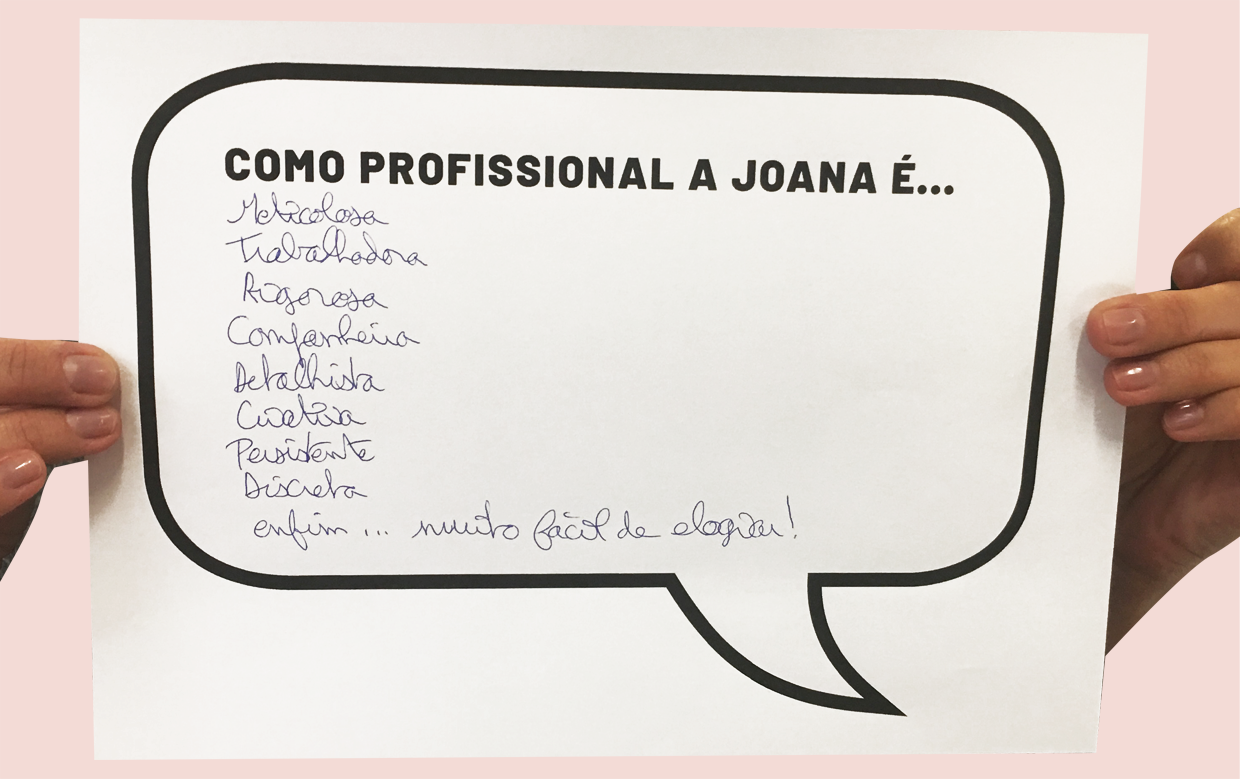 COMO PROFISSIONAL A JOANA É...
Meticolosa
Trabalhadora
Rigorosa
Companheira
Detalhista
Criativa
Persistente
Discreta
enfim ... muito fácil de elogiar!